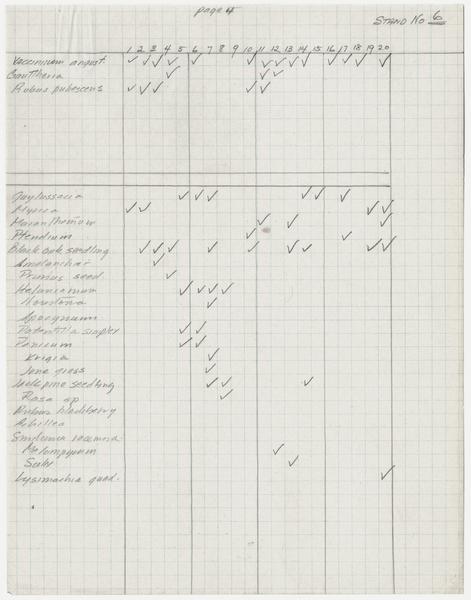 page 4
STAND No 6
1 2 3 4 5 6 7 8 9 10 11 12 13 14 15 16 17 18 19 20
Vaccinium angust. ✓ ✓ ✓ ✓ ✓ ✓ ✓ ✓ ✓ ✓ ✓ ✓ ✓ ✓
Gaultheria ✓ ✓ ✓
Rubus pubescens ✓ ✓ ✓ ✓ ✓
Gaylussacia ✓ ✓ ✓ ✓ ✓ ✓
Myrica ✓ ✓ ✓ ✓
Maianthemum ✓ ✓ ✓
Pteridium ✓ ✓
Black oak seedling ✓ ✓ ✓ ✓ ✓ ✓ ✓ ✓ ✓
Amelanchier ✓
Prunus seed. ✓
Helianthemum ✓ ✓ ✓ ✓
Houstonia ✓
Apocynum
Potentilla simplex ✓ ✓
Panicum ✓ ✓
Krigia ✓
June grass ✓
Jack pine seedling ✓ ✓ ✓
Rosa sp ✓
Rubus blackberry
Achillea
Smilacina racemosa
Melampyrum ✓
✓
Lysimachia quad. ✓